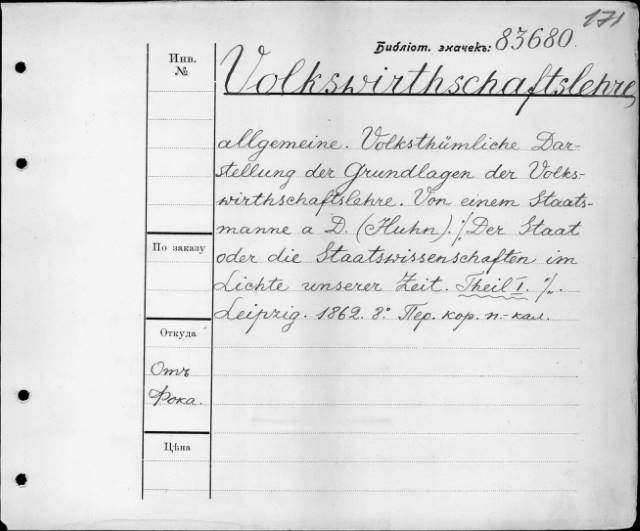 171
Библіот. значекъ: 83680.
Инв.
№
Volkswirthschaftslehre,
allgemeine. Volksthümliche Dar-
stellung der Grundlagen der Volks-
wirthschaftslehre. Von einem Staats-
manne a D. (Huhn). ./. Der Staat
oder die Staatswissenschaften im
Lichte unserer Zeit. Theil I. ./.
Leipzig. 1862. 8° Пер. кор. п.-кал.
По заказу
Откуда
Отъ
Фока.
Цѣна